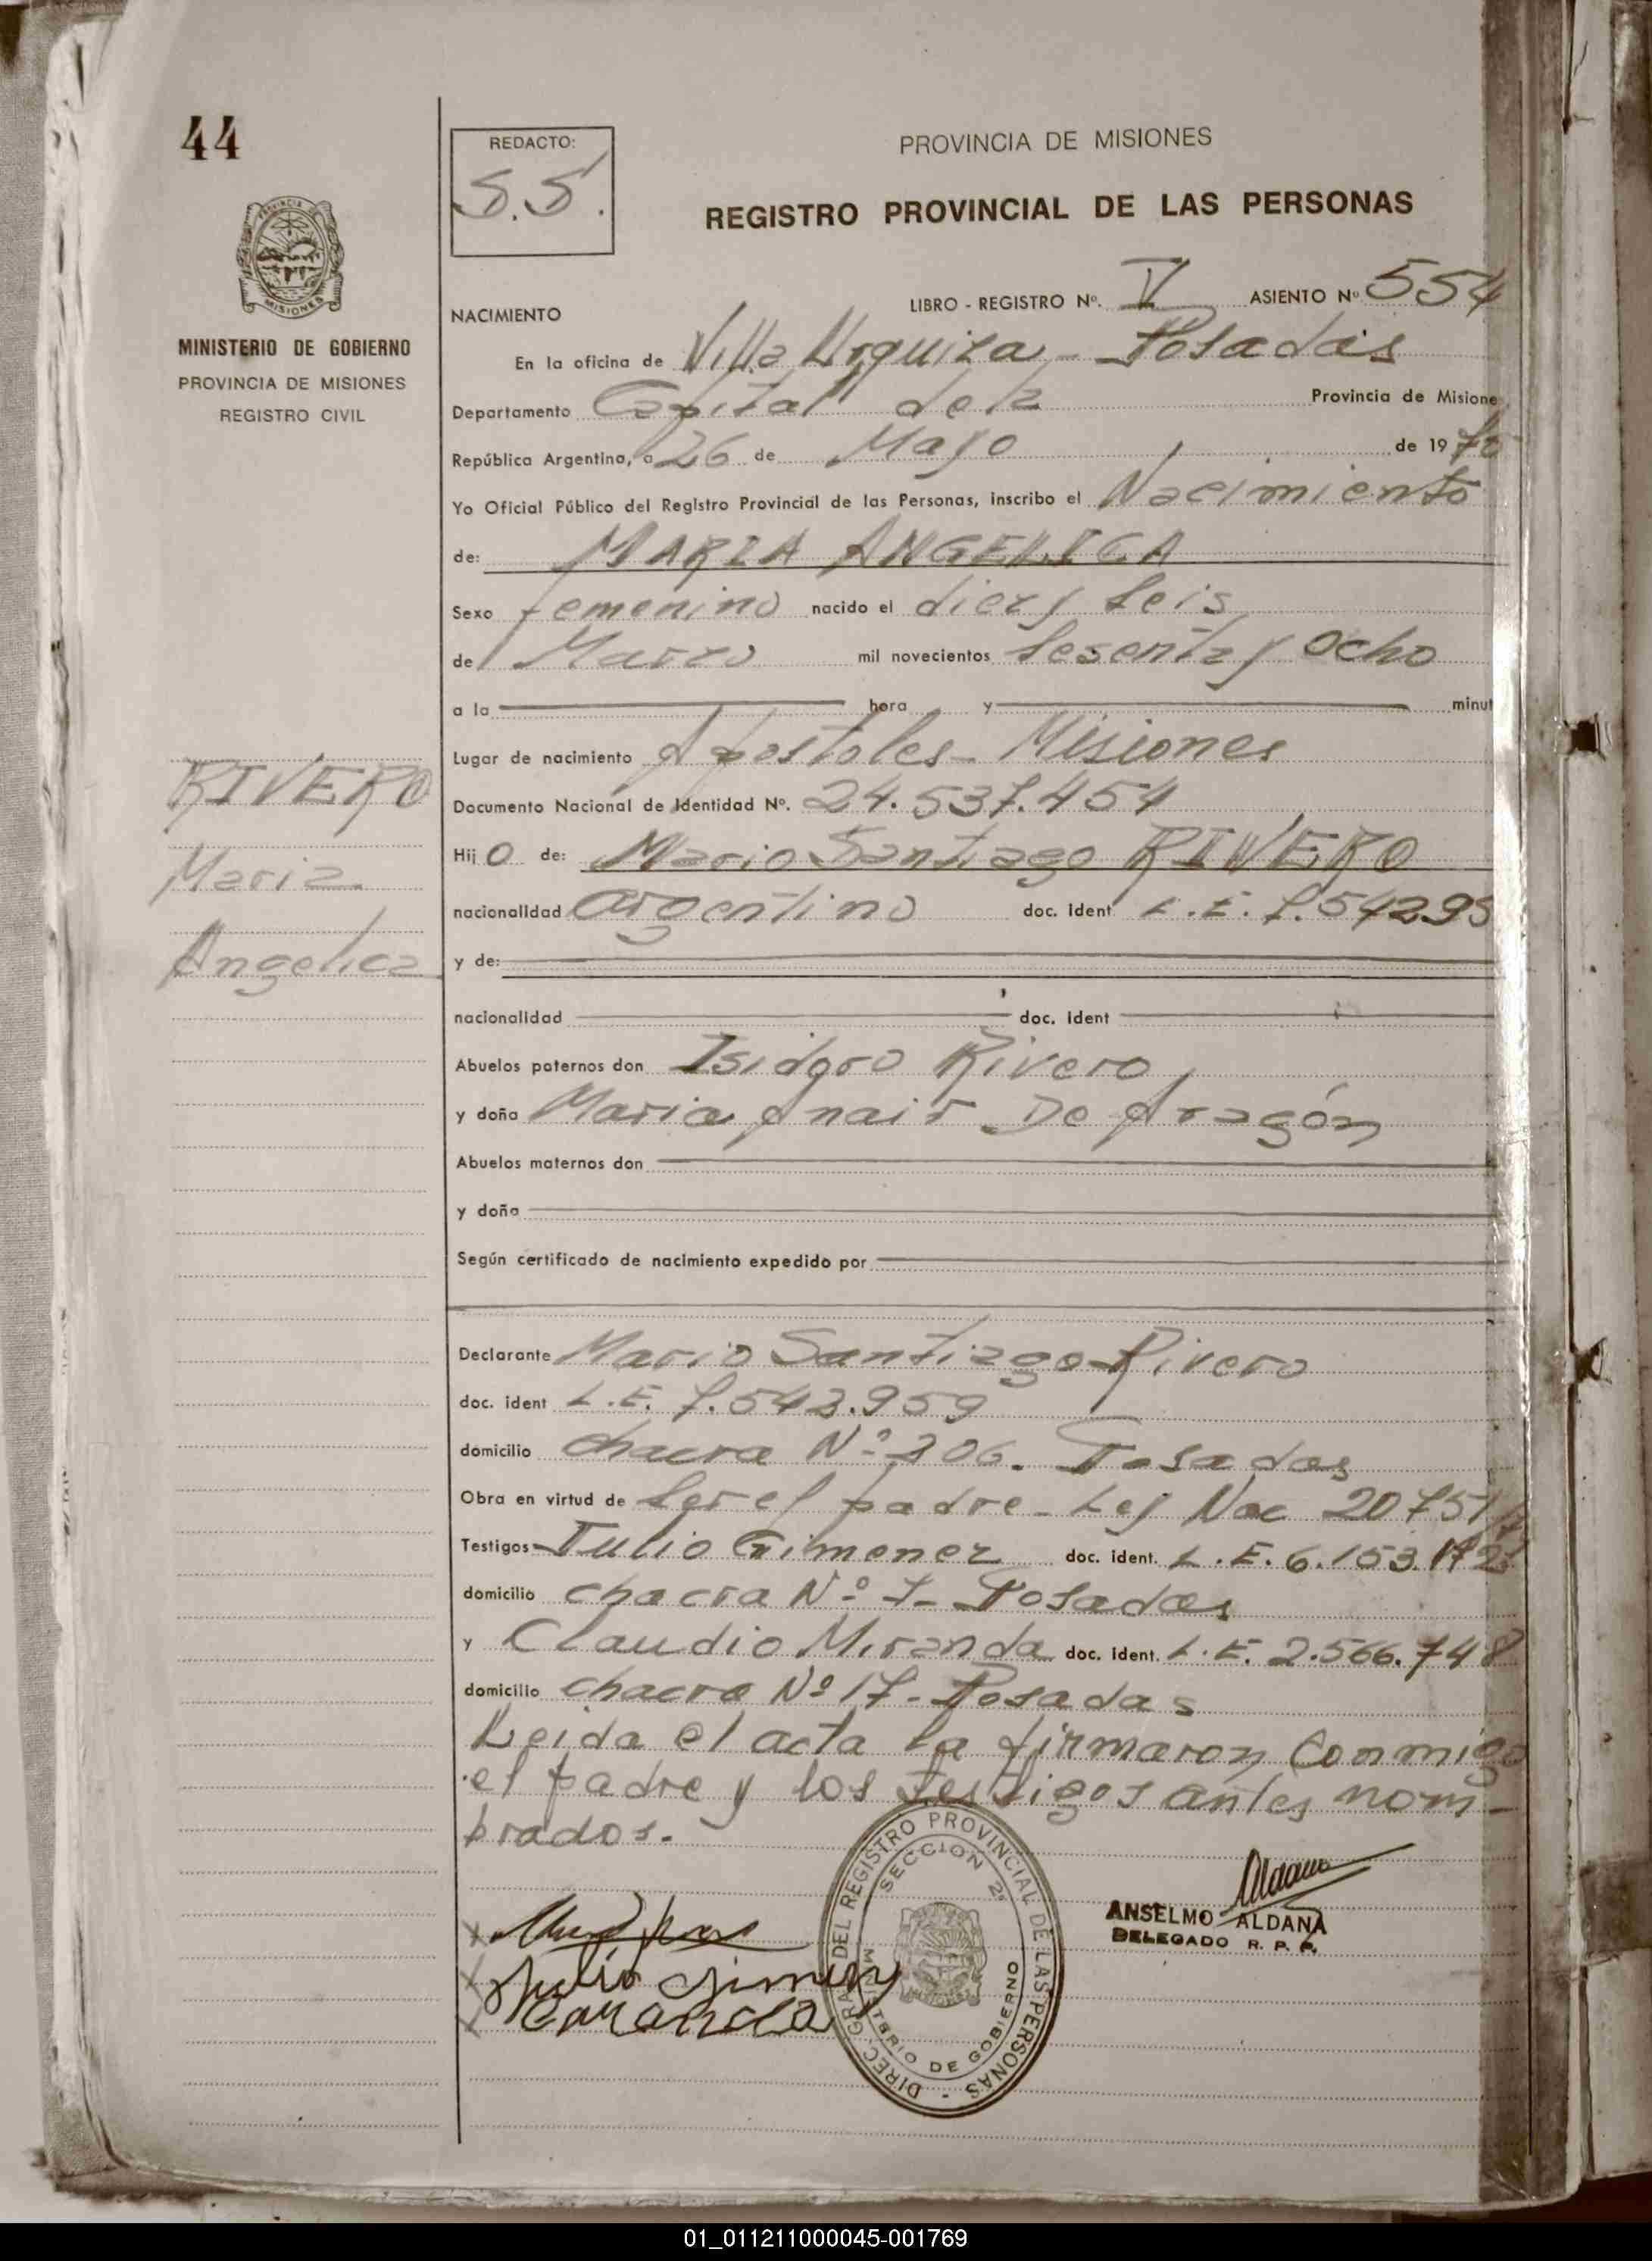 44
REDACTO:
S.S.
PROVINCIA DE MISIONES
REGISTRO PROVINCIAL DE LAS PERSONAS
PROVINCIA DE
MISIONES
MINISTERIO DE GOBIERNO
PROVINCIA DE MISIONES
REGISTRO CIVIL
NACIMIENTO
LIBRO - REGISTRO Nº. V ASIENTO Nº 554
En la oficina de Villa Urquiza - Posadas
Departamento Capital de la Provincia de Misione
República Argentina, a 26 de Mayo de 19
Yo Oficial Público del Registro Provincial de las Personas, inscribo el Nacimiento
de: MARIA ANGELICA
Sexo femenino nacido el diez y seis
de Marzo mil novecientos sesenta y ocho
a la hora y minut
Lugar de nacimiento Apostoles - Misiones
Documento Nacional de Identidad Nº. 24.537.454
Hij O de: Mario Santiago RIVERO
nacionalidad argentino doc. ident L.E. 7.54295
y de:
nacionalidad doc. ident
Abuelos paternos don Isidoro Rivero
y doña Maria Anair De Aragón
Abuelos maternos don
y doña
Según certificado de nacimiento expedido por
RIVERO
Maria
Angelica
Declarante Mario Santiago Rivero
doc. ident L.E. 7.542.959
domicilio chacra Nº 206. Posadas
Obra en virtud de ser el padre - Ley Nac 20751
Testigos Julio Gimenez doc. ident. L.E. 6.153.172
domicilio chacra Nº 7 - Posadas
y Claudio Miranda doc. ident. L.E. 2.566.748
domicilio chacra Nº 17 - Posadas
Leida el acta la firmaron conmigo
el padre y los testigos antes nom-
brados.
DIREC. GRAL DEL REGISTRO PROVINCIAL DE LAS PERSONAS -
SECCION 2ª
MINISTERIO DE GOBIERNO
MISIONES
Aldana
ANSELMO ALDANA
DELEGADO R. P. P.
Julio Gimenez
01_011211000045-001769